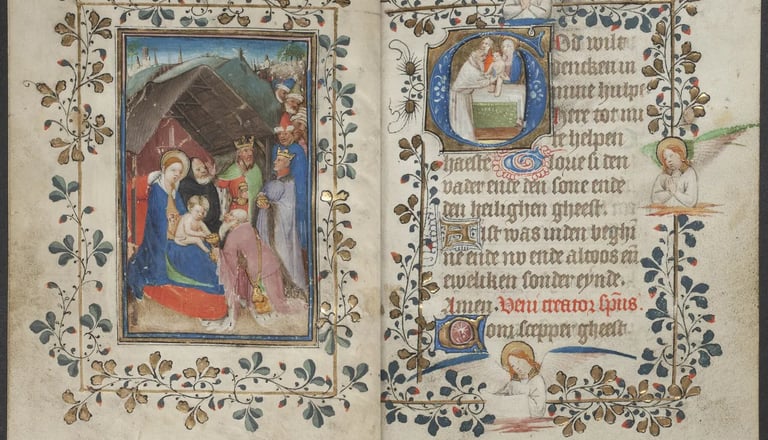 God wilt
dencken in
mine hulpe
Here tot mi
te helpen
haeste Glorie si den
vader ende den sone ende
den heilighen gheest.
Alst was inden beghi
ne ende nv ende altoos eñ
eweliken sonder eynde.
Amen. Veni creator spũs.
Coni scepper gheest